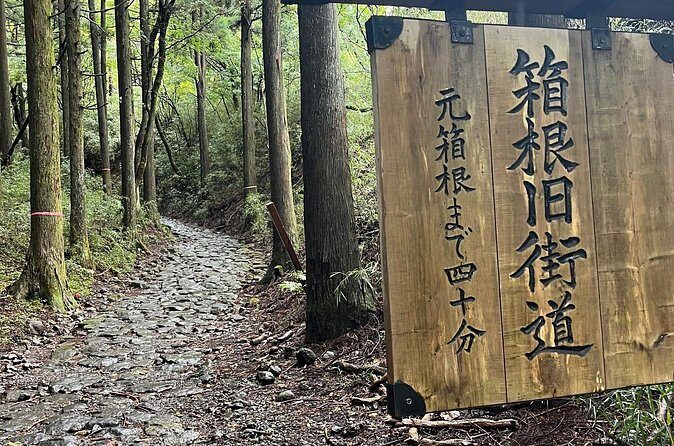 箱根旧街道
元箱根まで四十分